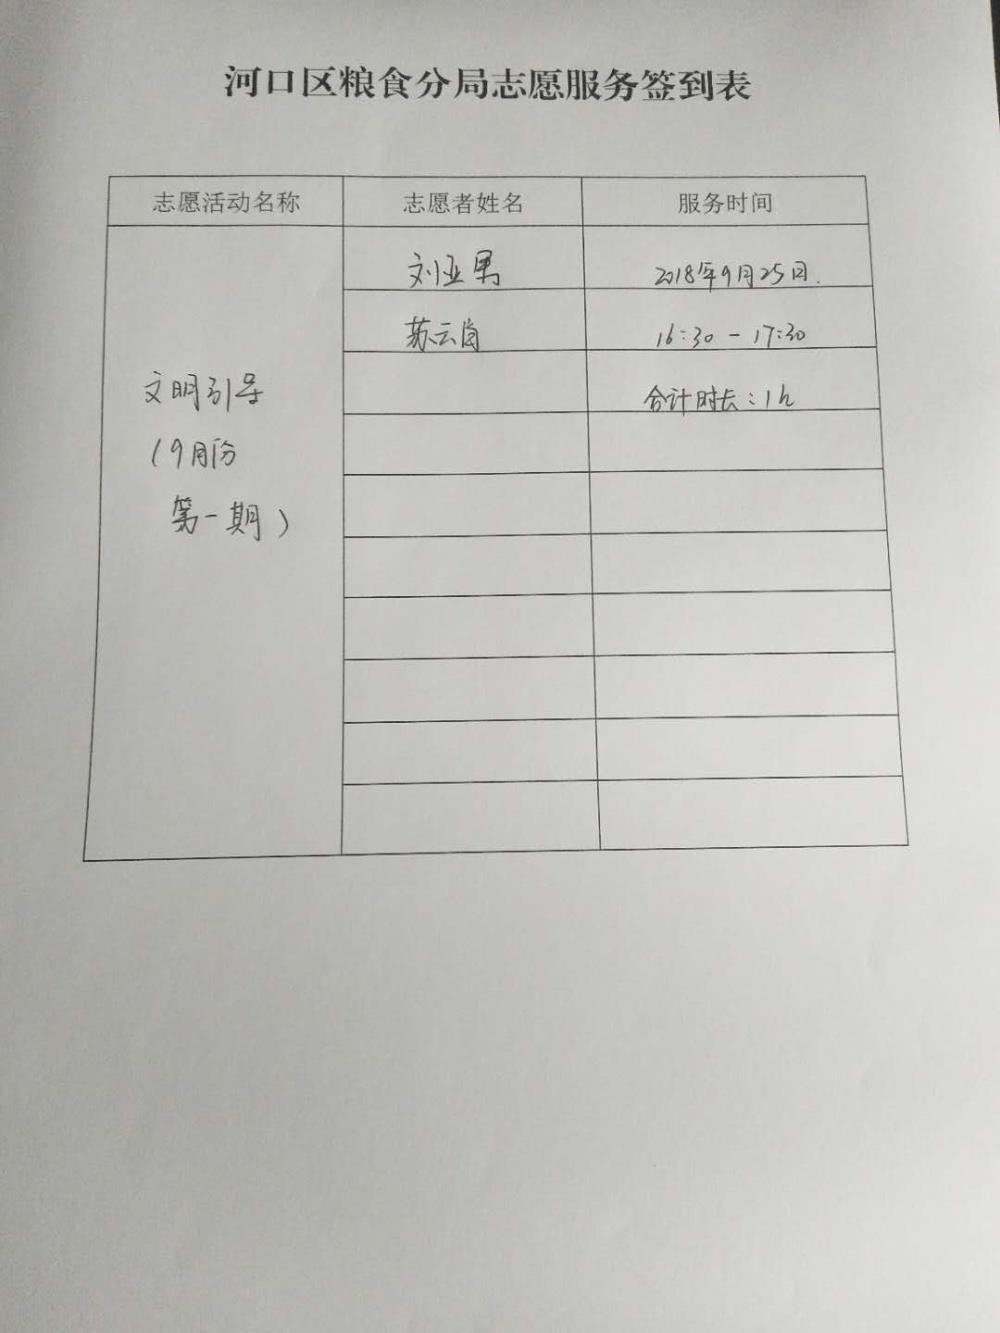 河口区粮食分局志愿服务签到表
志愿活动名称 志愿者姓名 服务时间
刘亚男 2018年9月25日.
苏云岗 16:30-17:30
文明引导
合计时长:1h
(9月份
第一期)